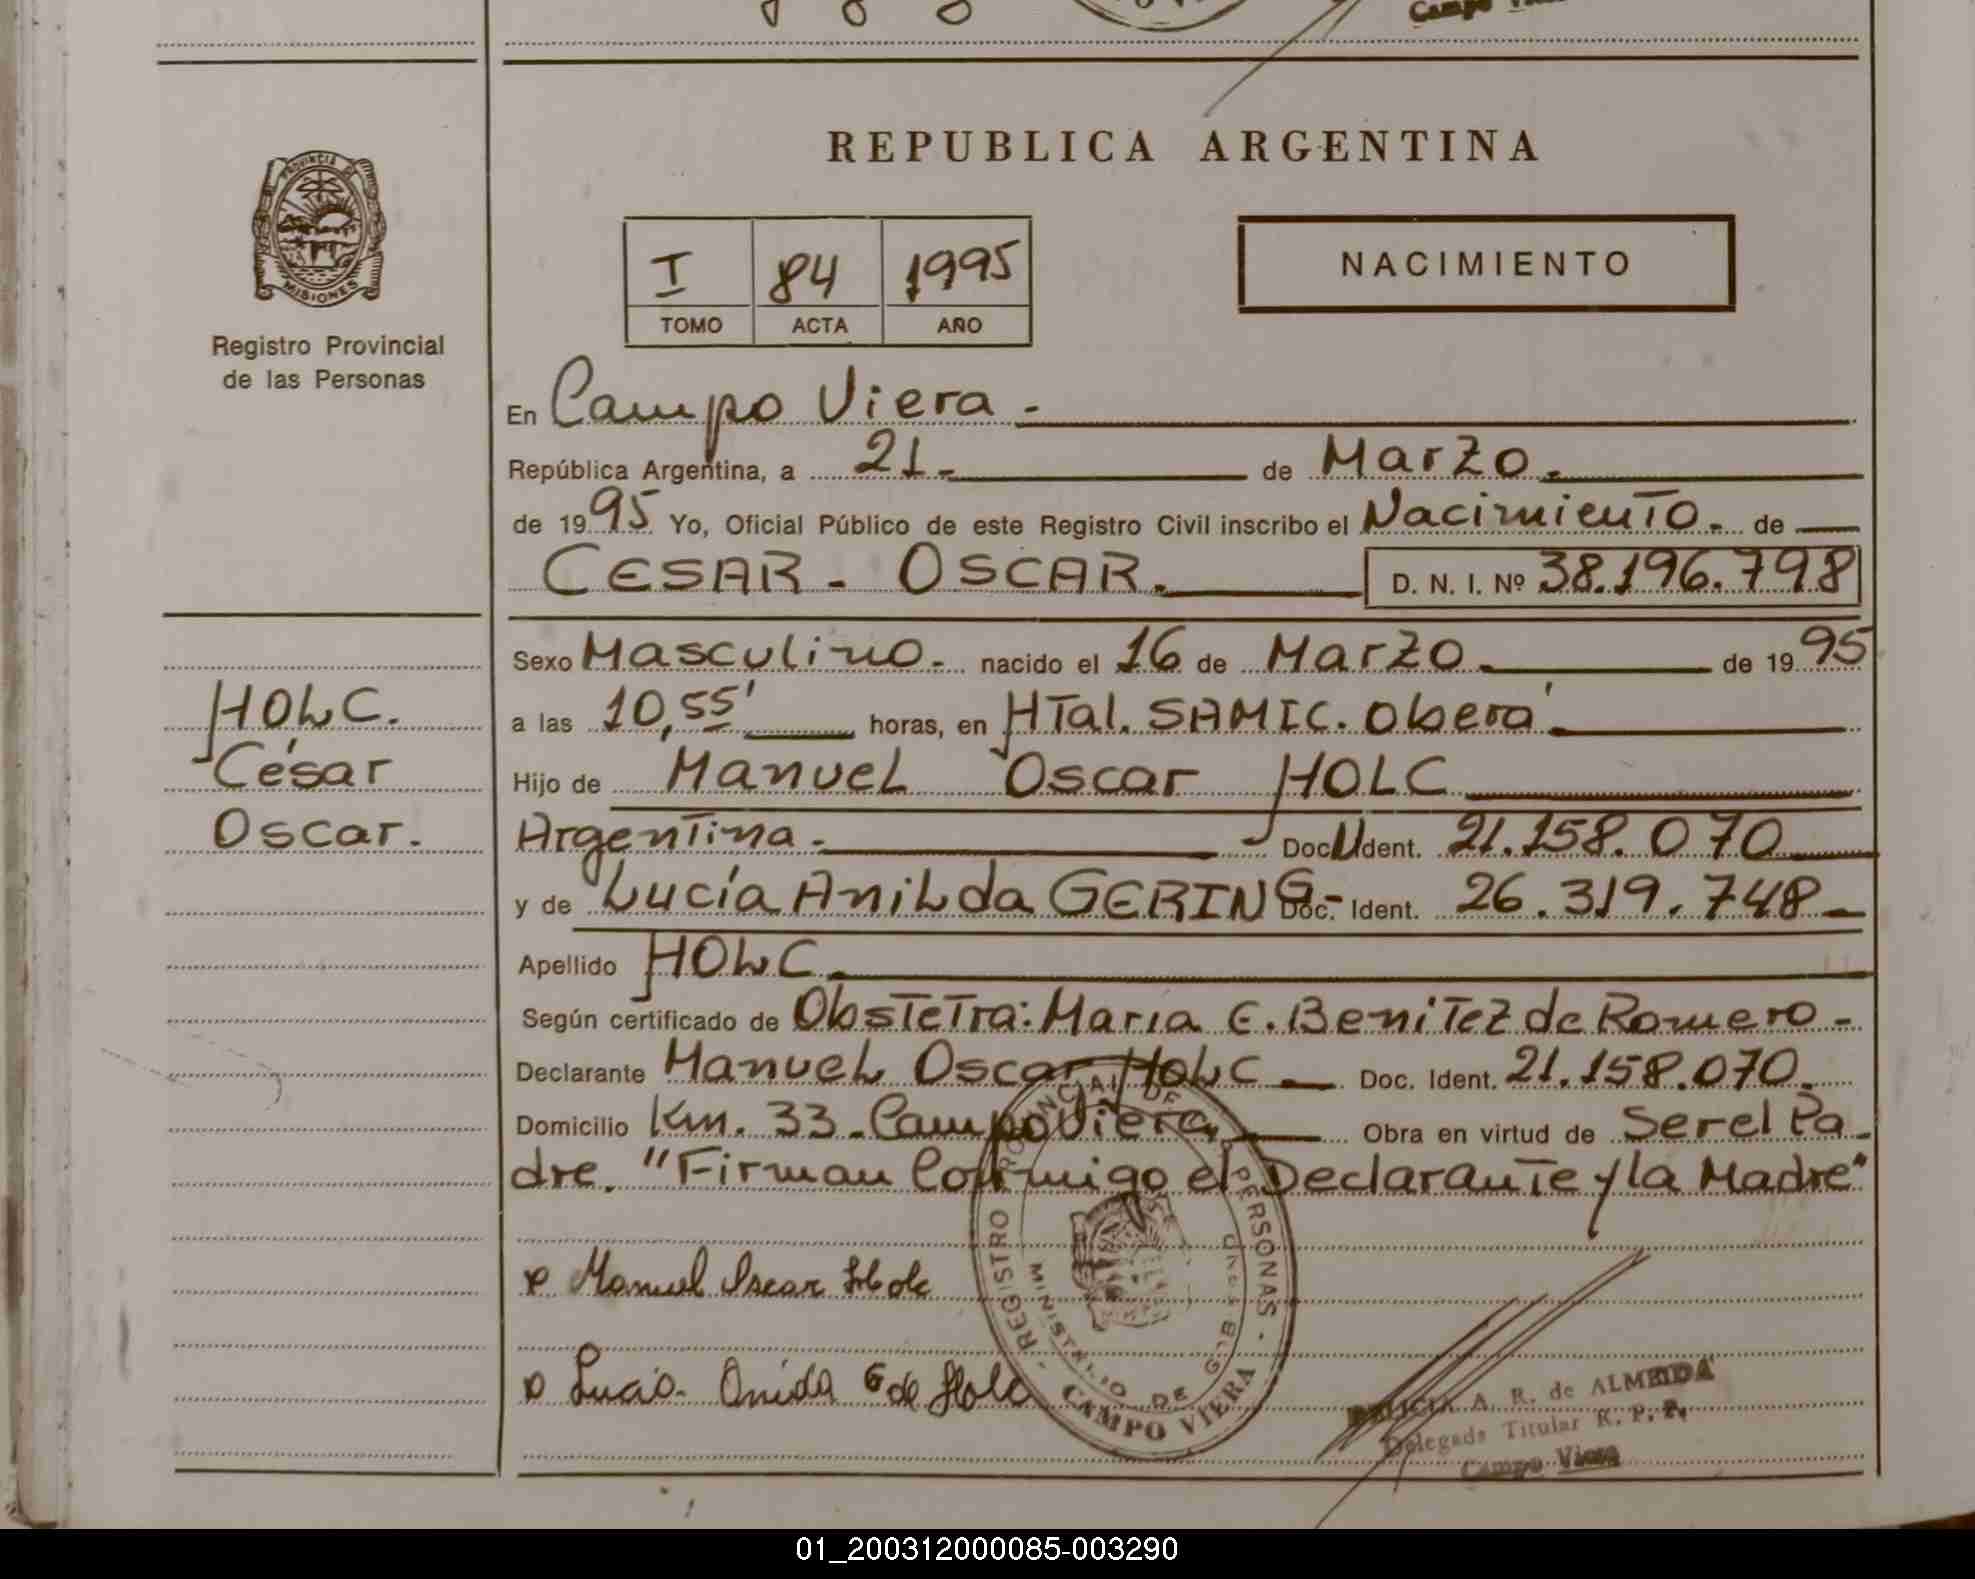 Campo Viera
REPUBLICA ARGENTINA
PROVINCIA
MISIONES
Registro Provincial
de las Personas
I 84 1995
TOMO ACTA AÑO
NACIMIENTO
En Campo Viera -
República Argentina, a 21 - de Marzo.
de 19 95 Yo, Oficial Público de este Registro Civil inscribo el Nacimiento. de
CESAR - OSCAR. D. N. I. Nº 38.196.798
Sexo Masculino. nacido el 16 de Marzo de 19 95
a las 10,55' horas, en HTal. SAMIC. Oberá
Hijo de Manuel Oscar HOLC
Argentina. Doc. U Ident. 21.158.070
y de Lucía Anilda GERING.- Doc. Ident. 26.319.748
Apellido HOLC
Según certificado de Obstetra: Maria E. Benitez de Romero -
Declarante Manuel Oscar HOLC Doc. Ident. 21.158.070.
Domicilio Km. 33 - Campo Viera, Obra en virtud de Ser el Pa-
dre. "Firman Conmigo el Declarante y la Madre"
HOLC.
César
Oscar.
Manuel Oscar Holc
Lucia Anilda G de Holc
REGISTRO PROVINCIAL DE LAS PERSONAS
MINISTERIO DE GOBIERNO
CAMPO VIERA
A. R. de ALMEIDA
Delegada Titular R. P. P.
Campo Viera
01_200312000085-003290